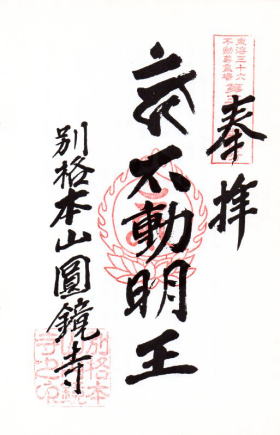 奉拝
東海三十六
不動尊霊場
不動明王
別格本山圓鏡寺
別格本
山圓鏡
寺之印